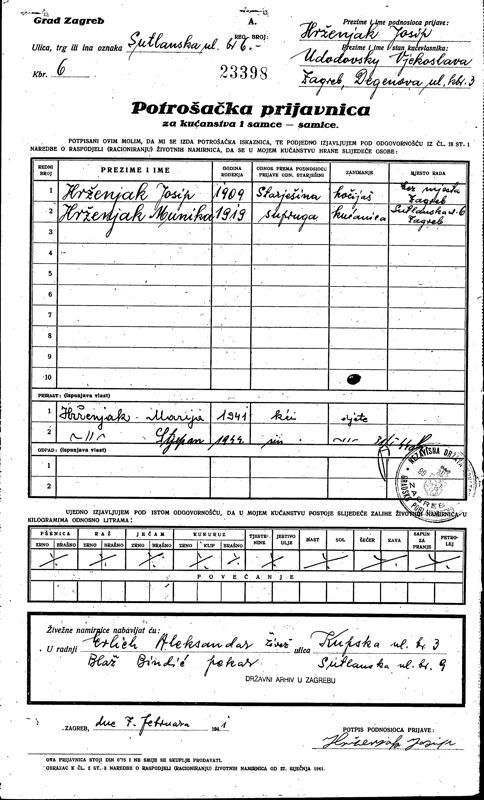 Grad Zagreb
A.
Prezime i ime podnosioca prijave:
Hrženjak Josip
Ulica, trg ili ina oznaka Sutlanska ul. br 6.-
REG. BROJ:
Prezime i ime i stan kućevlasnika:
Udodovsky Vjekoslava
Kbr. 6
23398
Zagreb, Degenova, ul. kbr. 3
Potrošačka prijavnica
za kućanstva i samce — samice.
POTPISANI OVIM MOLIM, DA MI SE IZDA POTROŠAČKA ISKAZNICA, TE PODJEDNO IZJAVLJUJEM POD ODGOVORNOŠĆU IZ ČL. 18 ST. 1
NAREDBE O RASPODJELI (RACIONIRANJU) ŽIVOTNIH NAMIRNICA, DA SE U MOJEM KUĆANSTVU HRANE SLIJEDEĆE OSOBE:
REDNI BROJ PREZIME I IME GODINA ROĐENJA ODNOS PREMA PODNOSIOCU PRIJAVE ODN. STARJEŠINI ZANIMANJE MJESTO RADA
1 Hrženjak Josip 1909 Starješina kočijaš bez mjesta Zagreb
2 Hrženjak Munika 1919 supruga kućanica Sutlanska ul. 6 Zagreb
3
4
5
6
7
8
9
10
PRIRAST: (ispunjava vlast)
1 Hrženjak Marija 1941 kći dijete
2 -"- Stjepan 1944 sin -"-
ODPAD: (ispunjava vlast)
1
2
NEZAVISNA DRŽAVA
ZAGREB
UJEDNO IZJAVLJUJEM POD ISTOM ODGOVORNOŠĆU, DA U MOJEM KUĆANSTVU POSTOJE SLIJEDEĆE ZALIHE ŽIVOTNIH NAMIRNICA U
KILOGRAMIMA ODNOSNO LITRAMA:
PŠENICA RAŽ JEČAM KUKURUZ TJESTENINE JESTIVO ULJE MAST SOL ŠEĆER KAVA SAPUN ZA PRANJE PETROLEJ
ZRNO BRAŠNO ZRNO BRAŠNO ZRNO BRAŠNO ZRNO KLIP BRAŠNO
POVEĆANJE
Živežne namirnice nabavljat ću:
U radnji Erlich Aleksandar živež ulica Kupska ul. br 3
Blaž Bindić pekar Sutlanska ul. br. 9
DRŽAVNI ARHIV U ZAGREBU
ZAGREB, dne 7. februara 1941
POTPIS PODNOSIOCA PRIJAVE:
Hrženjak Josip
OVA PRIJAVNICA STOJI DIN 0'75 I NE SMIJE SE SKUPLJE PRODAVATI.
OBRAZAC K ČL. 2 ST. 2 NAREDBE O RASPODJELI (RACIONIRANJU) ŽIVOTNIH NAMIRNICA OD 27. SIJEČNJA 1941.